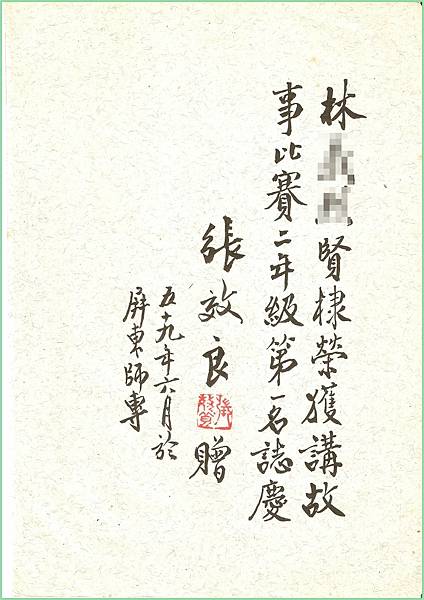 林賢棣榮獲講故
事比賽二年級第一名誌慶
張效良贈
張效良
五十九年六月於
屏東師專